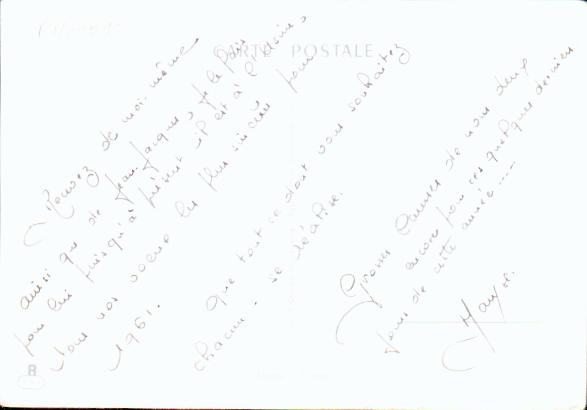 CARTE POSTALE
Recevez de moi-même
ainsi que de Jean-Jacques, je le fais
pour lui puisqu'à présent il est à
tous nos voeux les plus sincères pour
1961.
Que tout ce dont vous souhaitez
chacun - se réalise.
Grosses de nous deux
encore pour ces quelques derniers
jours de cette année ----